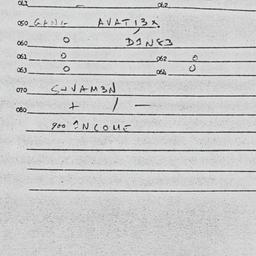 041 042
050 GANG AVATI3A
/
060 0 D1N83
061 0 062 0
063 0 064 0
070 SUVAM3N
+ / -
080
900 INCOME